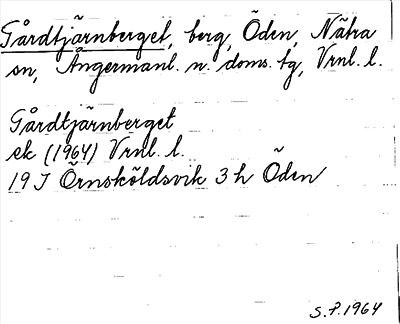 Gårdtjärnberget, berg, Öden, Nätra
sn, Ångermanl. n. doms. tg, Vrnl. l.
Gårdtjärnberget
ek (1964) Vrnl. l.
19 J Örnsköldsvik 3 h Öden
S.P. 1964